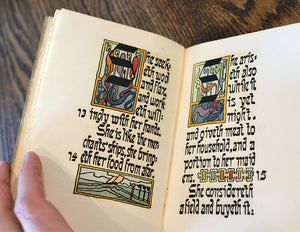 She seek
eth wool
and flax,
and work
eth will=
13 ingly with her hands.
She is like the mer=
chants' ships; she bring=
14 eth her food from afar.
She aris=
eth also
while it
is yet
night,
and giveth meat to
her household, and a
portion to her maid
ens. 15
She considereth
a field and buyeth it: